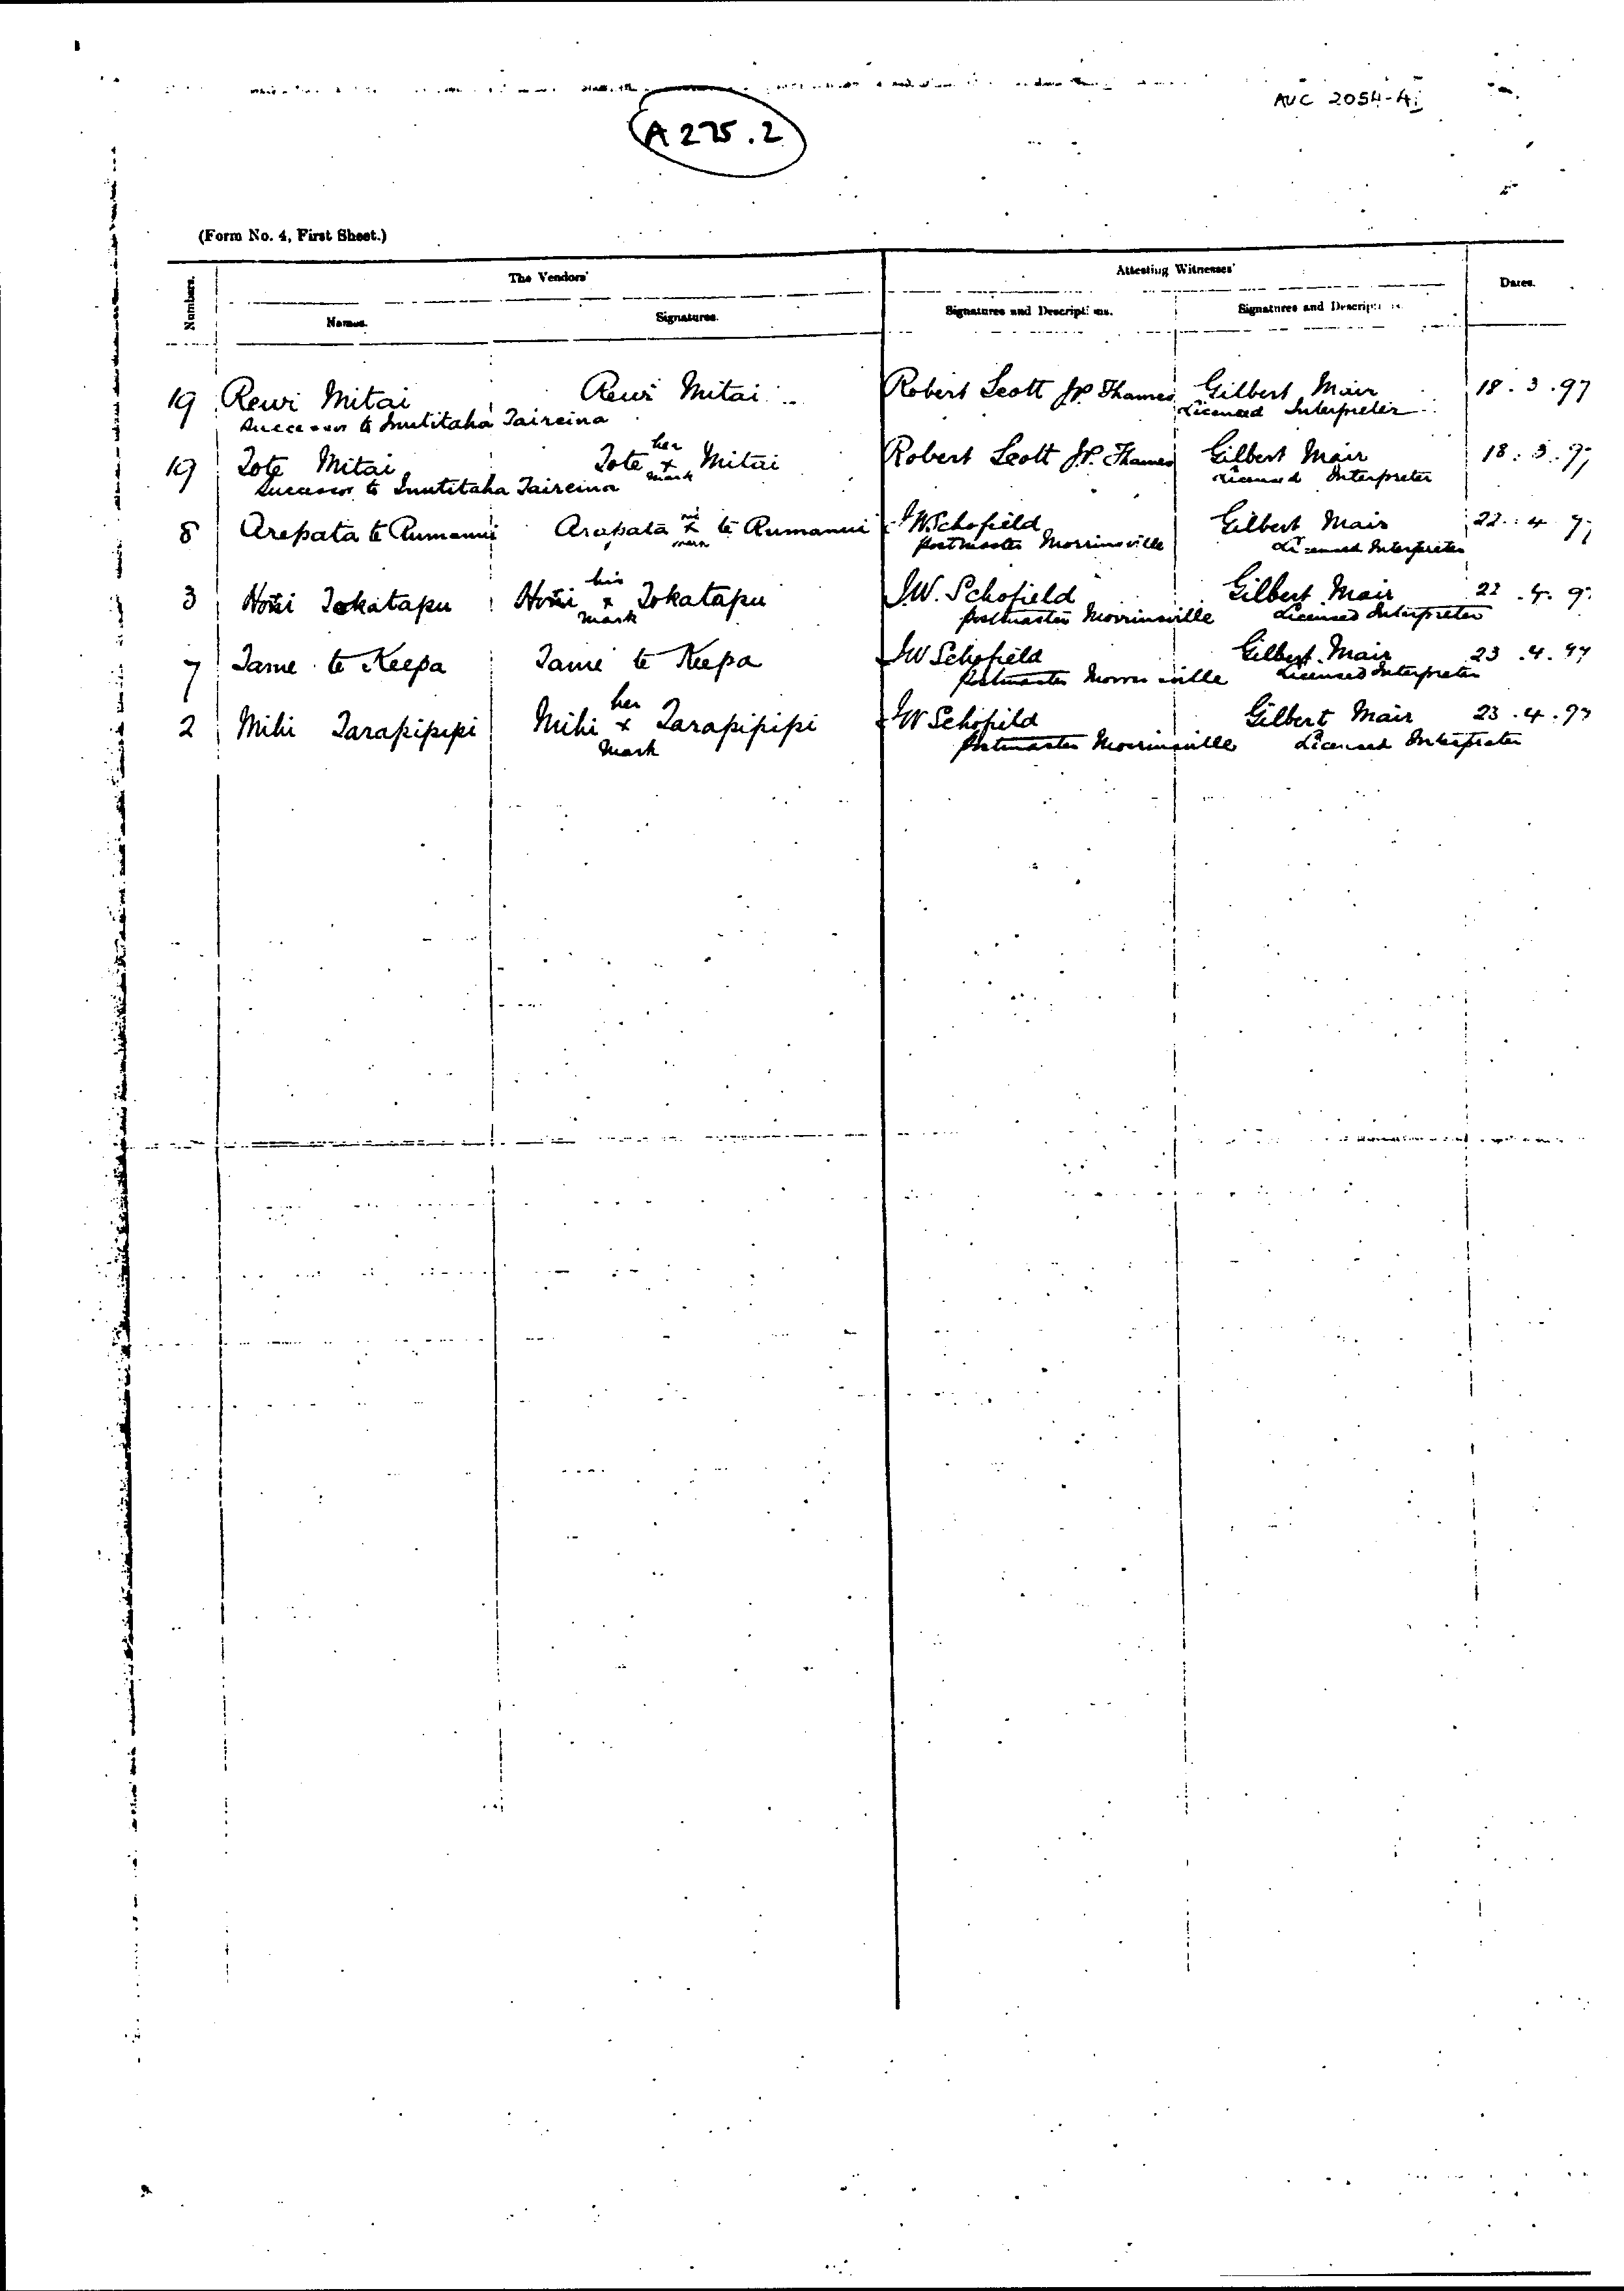 AUC 2054-4i
A275.2
(Form No. 4, First Sheet.)
Numbers. The Vendors' Attesting Witnesses' Dates.
Names. Signatures. Signatures and Descriptions. Signatures and Descriptions.
19 Rewi Mitai Rewi Mitai Robert Scott J.P. Thames Gilbert Mair 18.3.97
Successor to Inutitaha Taireina Licensed Interpreter
her
19 Tote Mitai Tote x Mitai Robert Scott J.P. Thames Gilbert Mair 18.3.97
Successor to Inutitaha Taireina mark Licensed Interpreter
8 Arepata te Rumanui Arapata x te Rumanui J W Schofield Gilbert Mair 22.4.9
Postmaster Morrinsville Licensed Interpreter
his
3 Hori Tokatapu Hori x Tokatapu J.W. Schofield Gilbert Mair 22.4.9
mark Postmaster Morrinsville Licensed Interpreter
7 Tame te Keepa Tame te Keepa J W Schofield Gilbert Mair 23.4.97
Postmaster Morrinsville Licensed Interpreter
her
2 Mihi Tarapipipi Mihi x Tarapipipi J W Schofield Gilbert Mair 23.4.97
mark Postmaster Morrinsville Licensed Interpreter